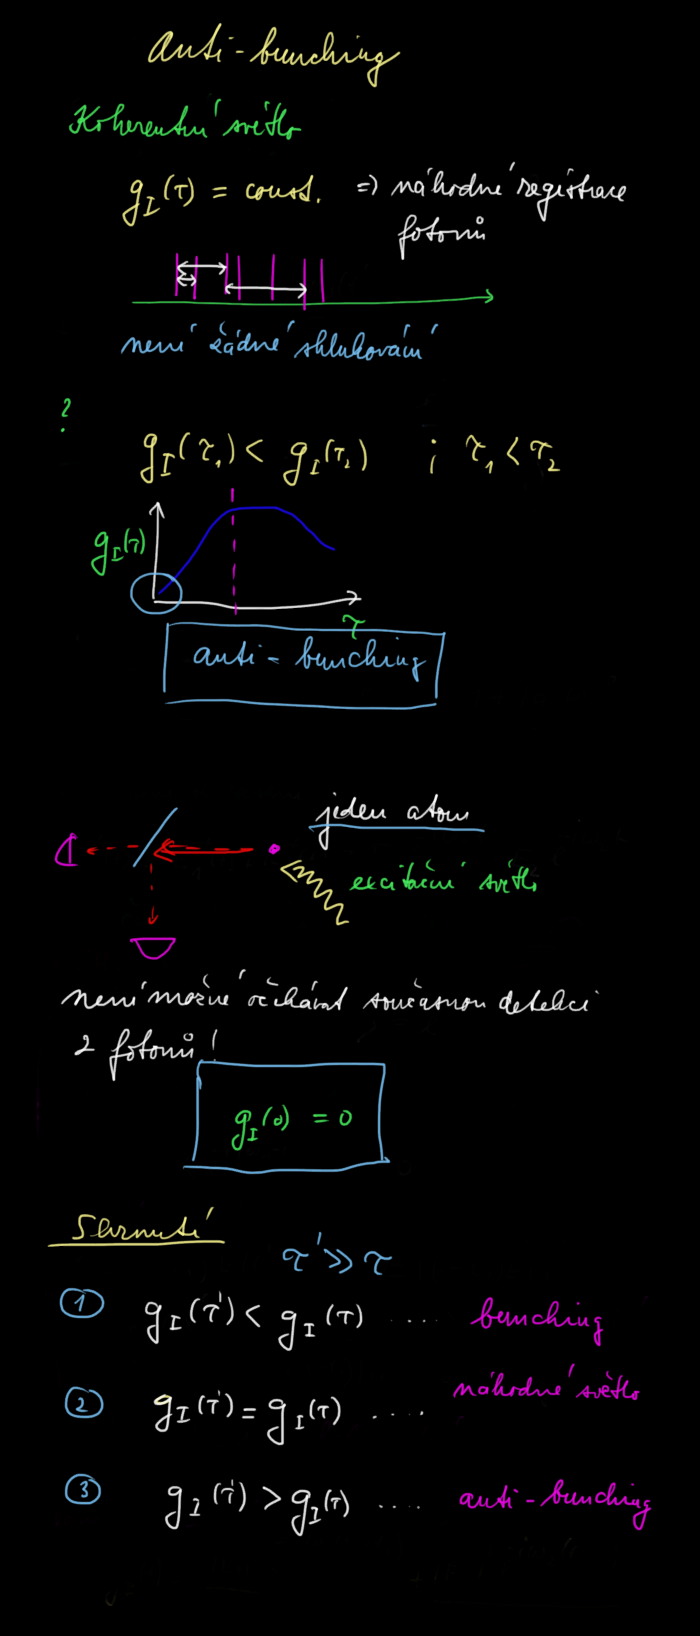 anti-bunching
Koherentní světlo
g_I(τ) = const. => náhodné registrace
fotonů
není žádné shlukování
?
g_I(τ_1) < g_I(τ_2) ; τ_1 < τ_2
g_I(τ)
τ
anti-bunching
jeden atom
excitační světlo
není možné očekávat současnou detekci
2 fotonů!
g_I(0) = 0
Shrnutí
τ' >> τ
1 g_I(τ') < g_I(τ) .... bunching
2 g_I(τ') = g_I(τ) .... náhodné světlo
3 g_I(τ') > g_I(τ) .... anti-bunching